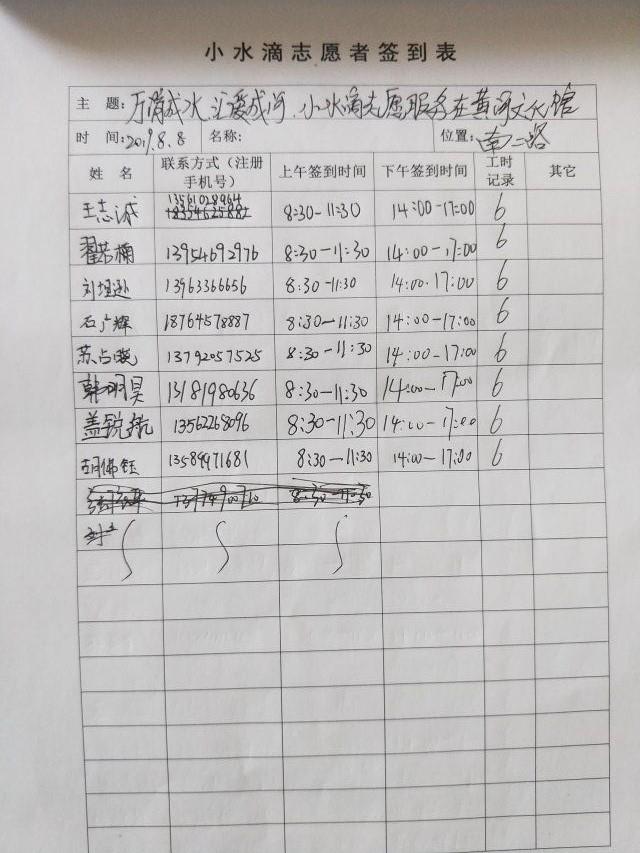 小水滴志愿者签到表
主 题: 万滴成水 汇爱成河,小水滴志愿服务在黄河文化馆
时 间: 2019.8.8 名称: 位置: 南二路
姓 名 联系方式(注册手机号) 上午签到时间 下午签到时间 工时记录 其它
王志诚 13561028964 8:30-11:30 14:00-17:00 6
翟若楠 13954692976 8:30-11:30 14:00-17:00 6
刘垣逊 13963366656 8:30-11:30 14:00-17:00 6
石广辉 18764578887 8:30-11:30 14:00-17:00 6
苏占晓 13792057525 8:30-11:30 14:00-17:00 6
韩明昊 13181980636 8:30-11:30 14:00-17:00 6
盖锐航 13562268096 8:30-11:30 14:00-17:00 6
胡伟钰 13589971681 8:30-11:30 14:00-17:00 6
8:30-11:30